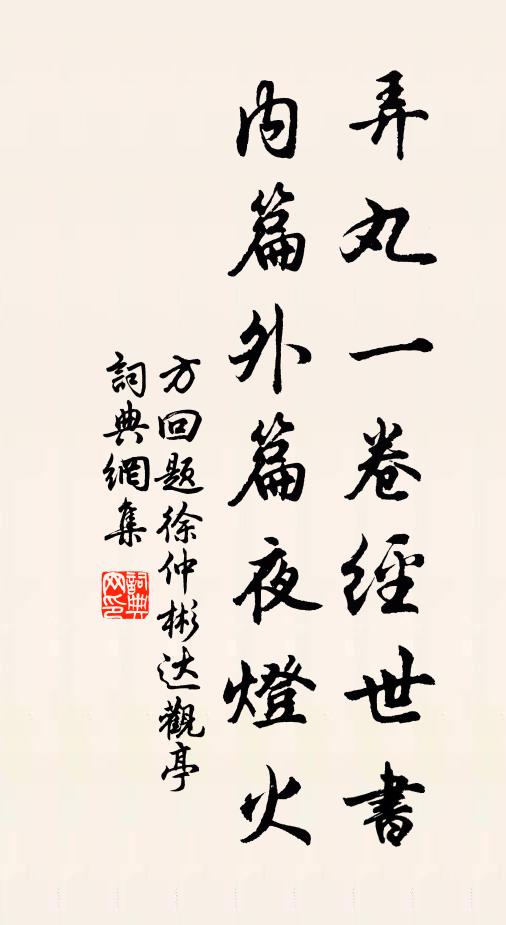 弄丸一卷經世書
内篇外篇夜燈火
方回题徐仲彬达觀亭
詞典網集
詞典網印